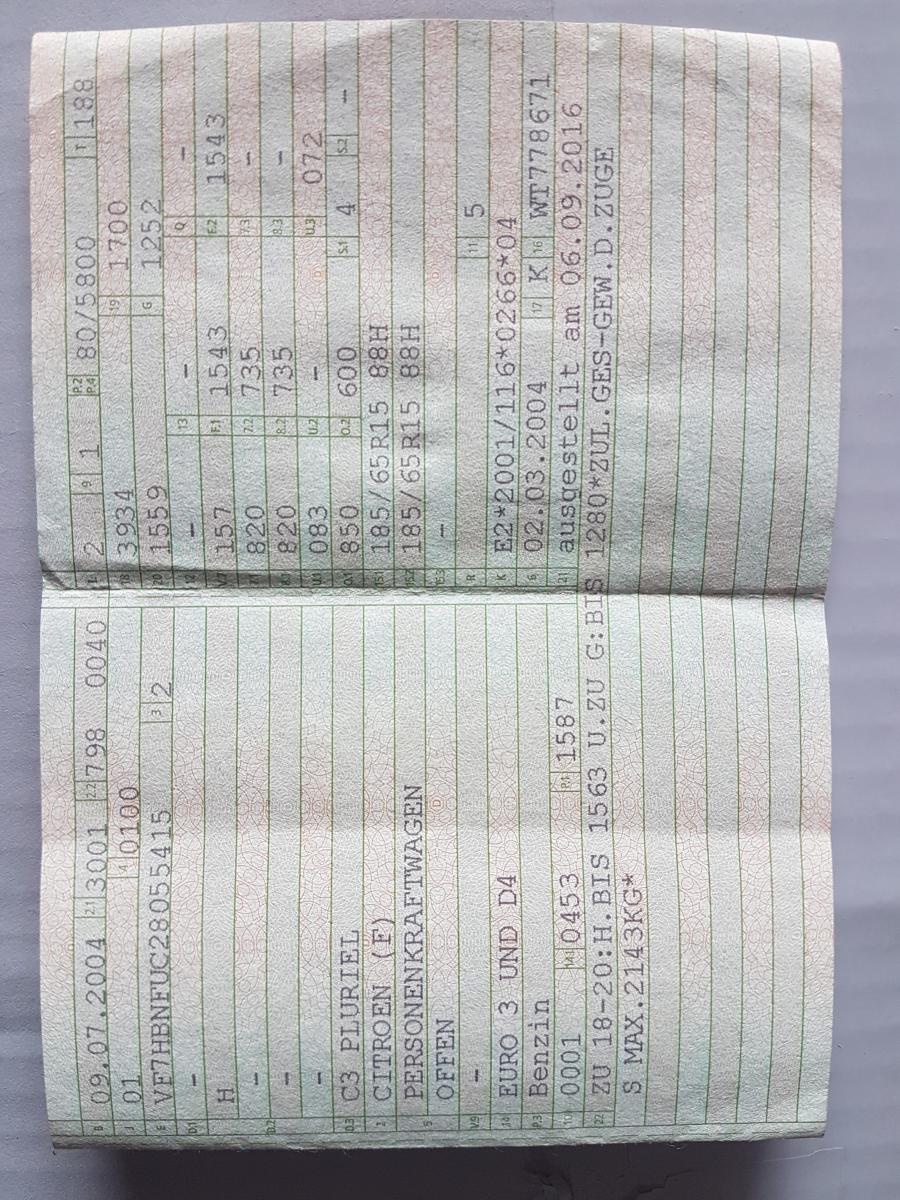 B 09.07.2004 2.1 3001 2.2 798 0040
J 01 4 0100
E VF7HBNFUC28055415 3 2
D.1 -
H
D.2 -
-
-
D.3 C3 PLURIEL
2 CITROEN (F)
5 PERSONENKRAFTWAGEN
OFFEN
V.9 -
14 EURO 3 UND D4
P.3 Benzin
10 0001 14.1 0453 P.1 1587
22 ZU 18-20:H.BIS 1563 U.ZU G:BIS 1280*ZUL.GES-GEW.D.ZUGE
S MAX.2143KG*
L 2 9 1 P.2 P.4 80/5800 T 188
18 3934 19 1700
20 1559 G 1252
12 - 13 - Q -
V.7 157 F.1 1543 F.2 1543
7.1 820 7.2 735 7.3 -
8.1 820 8.2 735 8.3 -
U.1 083 U.2 - U.3 072
O.1 850 O.2 600 S.1 4 S.2 -
15.1 185/65R15 88H
15.2 185/65R15 88H
15.3 -
R 11 5
K E2*2001/116*0266*04
6 02.03.2004 17 K 16 WT778671
21 ausgestellt am 06.09.2016